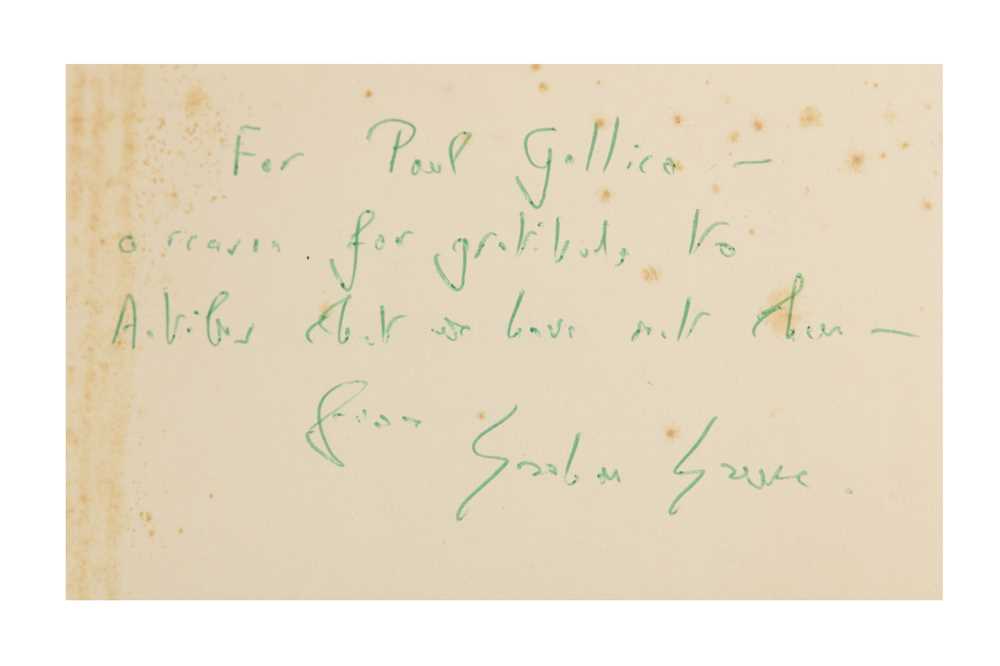 For Paul Gallico —
a reason for gratitude to
Antibes that we have met there —
from Graham Greene.